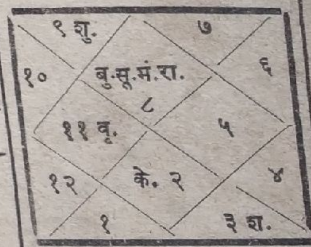 ९ शु. ७
१० बु.सू.मं.रा. ६
८
११ वृ. ५
१२ के. २ ४
१ ३ श.